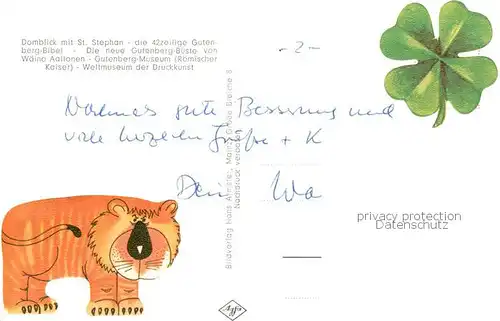 Domblick mit St. Stephan - die 42zeilige Guten-
berg-Bibel - Die neue Gutenberg-Büste von
Wäinö Aaltonen - Gutenberg-Museum (Römischer
Kaiser) - Weltmuseum der Druckkunst
- 2 -
Nochmals gute Besserung und
viele herzliche Grüße + K
Dein
Bildverlag Hans
Nachdruck verboten
privacy protection
Datenschutz
Agfa